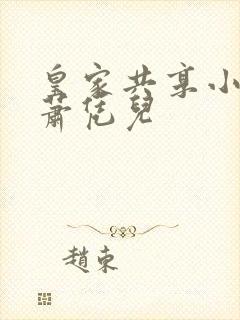 皇家共享小
蕭凭兒
趙東